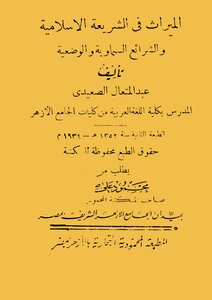 الميراث فى الشريعة الاسلامية
والشرائع السماوية والوضعية
تأليف
عبد المتعال الصعيدى
المدرس بكلية اللغة العربية من كليات الجامع الأزهر
الطبعة الثانية سنة ١٣٥٢ هـ - ١٩٣٤ م
حقوق الطبع محفوظة
يطلب من
محمود على
صاحب المكتبة المحمودية
بميدان الجامع الأزهر الشريف بمصر
المطبعة المحمودية التجارية بالأزهر بمصر